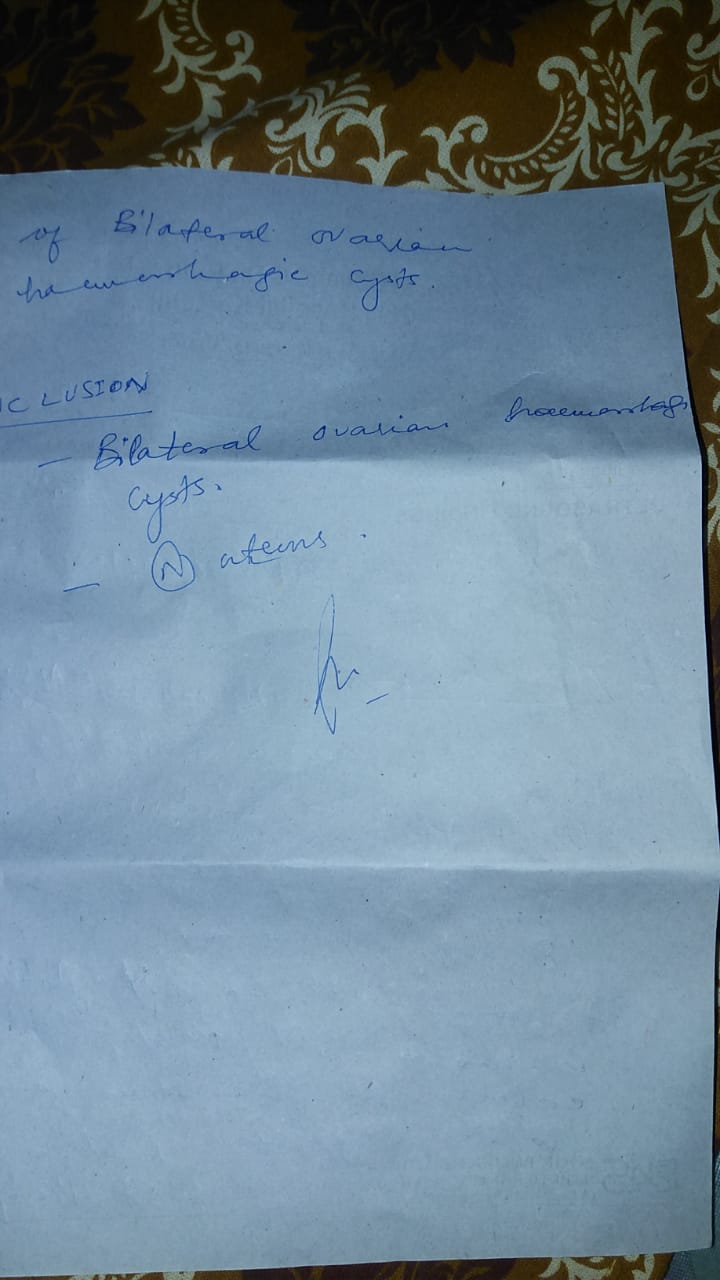 of Bilateral ovarian
haemorrhagic cysts.
CLUSION
- Bilateral ovarian haemorrhagi
cysts.
- Ⓝ uterus.